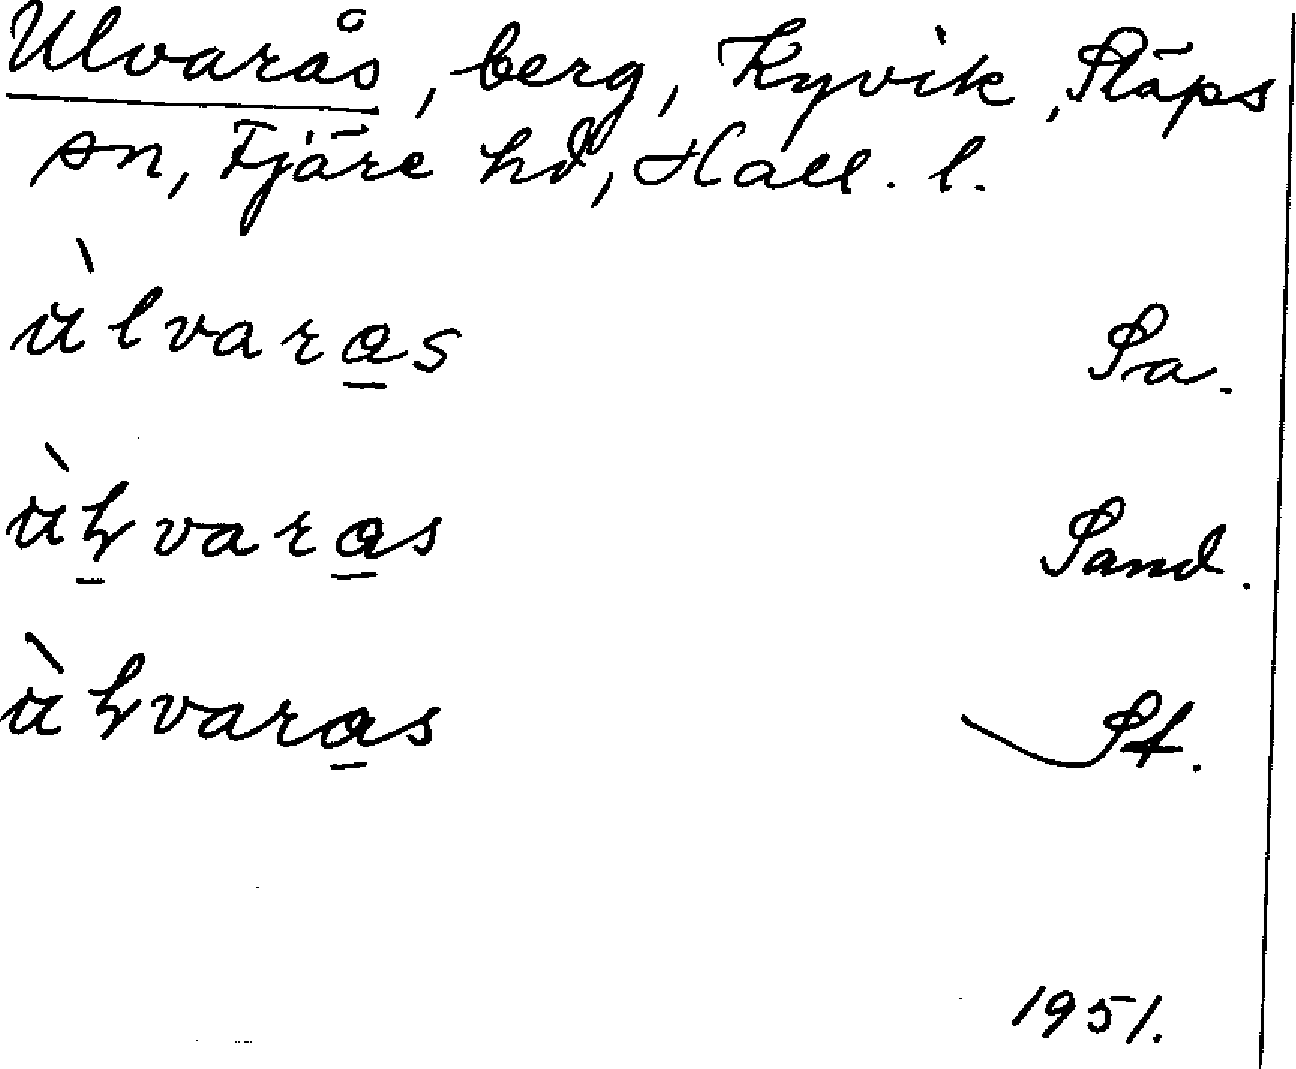 Ulvarås, berg, Kyvik, Släps
sn, Fjäre hd, Hall. l.
ùlvaras Sa.
ùɫvaras Sand.
ùɫvaras St.
1951.